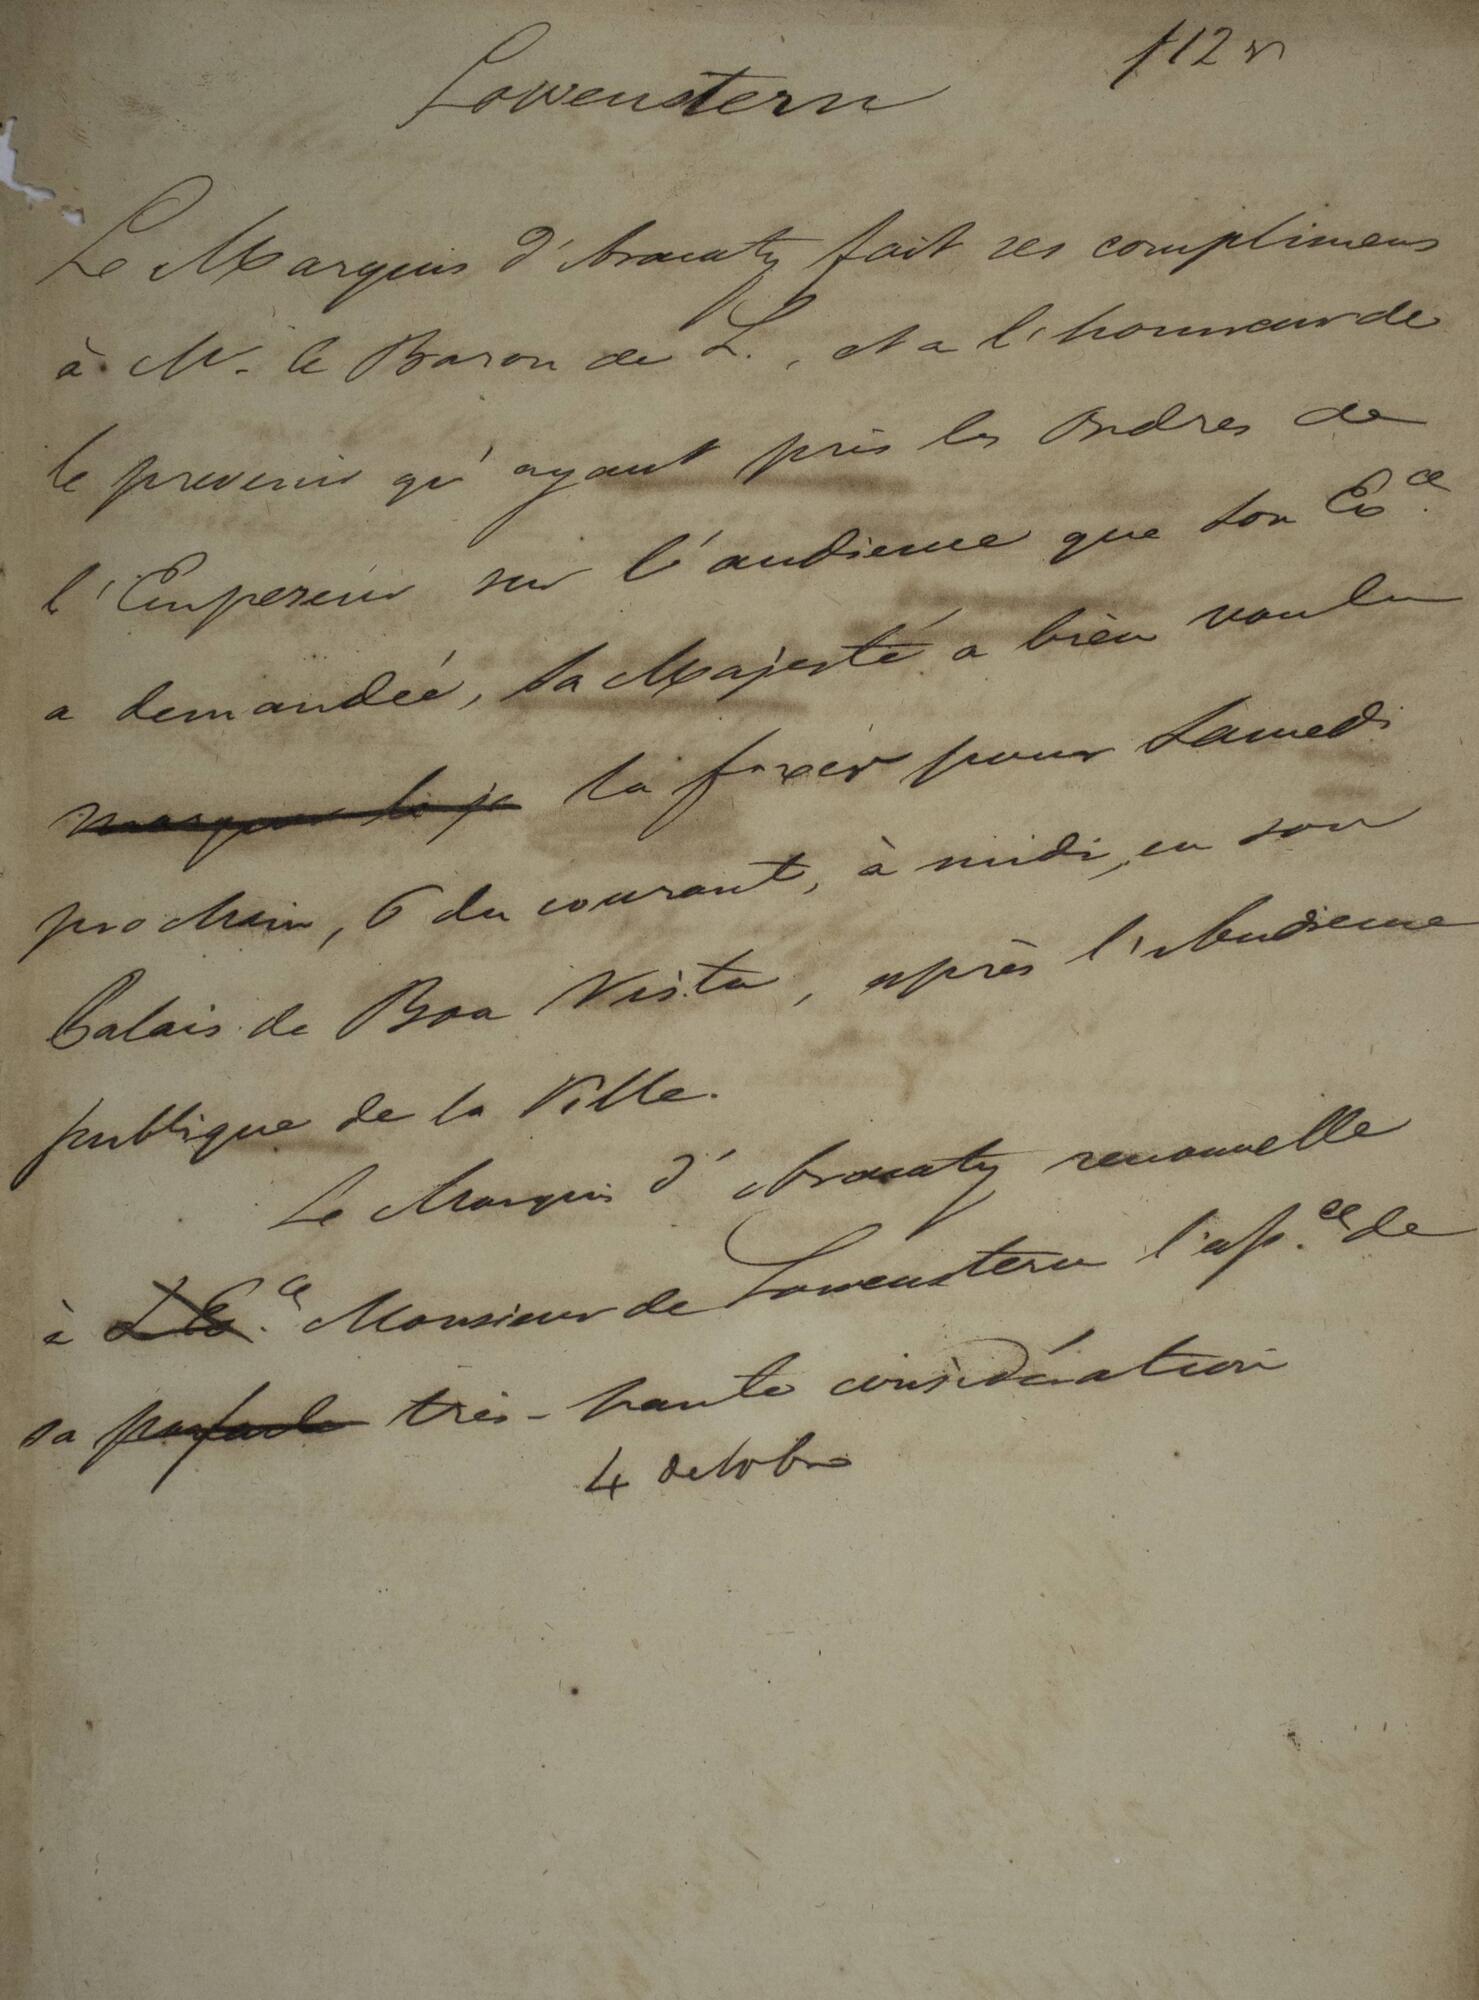 112 v
Lowenstern
Le Marquis d'Aracaty fait ses complimens
à Mr. le Baron de L., et a l'honneur de
le prevenir qu'ayant pris les Ordres de
l'Empereur sur l'audience que Son Ex.ce
a demandée, Sa Majesté a bien voulu
marquer le jo la fixer pour Samedi
prochain, 6 du courant, à midi, en son
Palais de Boa Vista, après l'Audience
publique de la Ville.
Le Marquis d'Aracaty renouvelle
à S. Ex.ce Monsieur de Lowenstern l'ass.ce de
sa parfaite très-haute considération
4 octobre